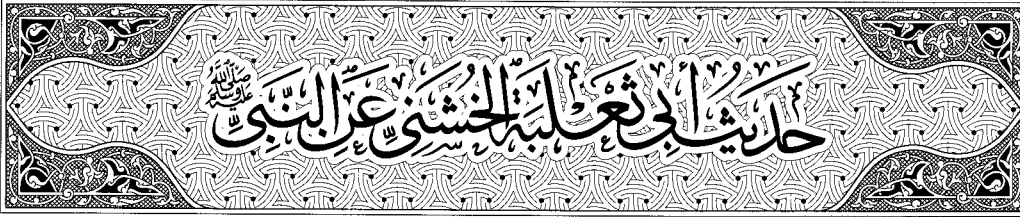 حَدِيثُ أَبِي ثَعْلَبَةَ الْخُشَنِيِّ عَنِ النَّبِيِّ ﷺ